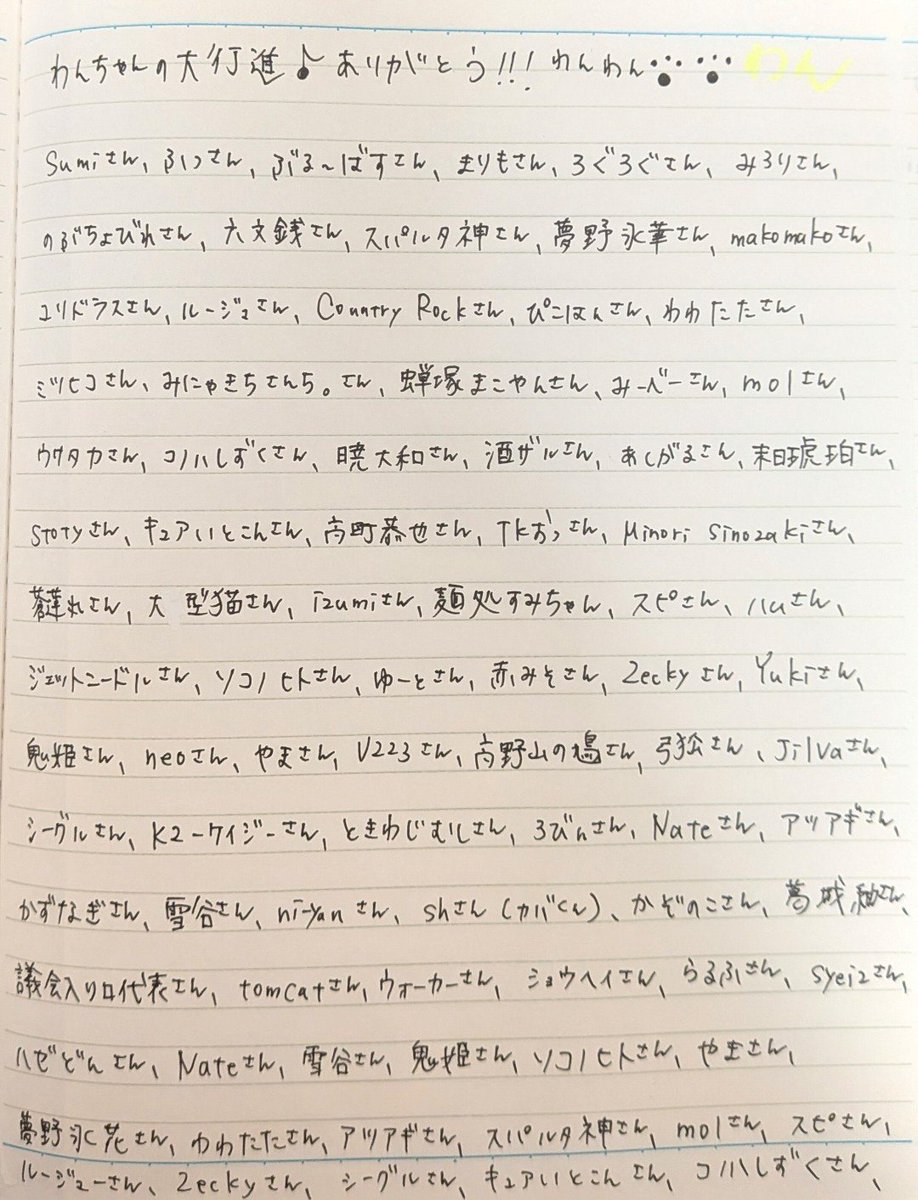 わんちゃんの大行進♪ ありがとう!!! わんわん わん
Sumiさん、ふっさん、ぶる〜ばすさん、まりもさん、ろぐろぐさん、みろりさん、
のぶちょびれさん、六文銭さん、スパルタ神さん、夢野氷華さん、makomakoさん、
ユリドラスさん、ルージュさん、Country Rockさん、ぴこはんさん、わわたたさん、
ミツヒコさん、みにゃきちさんち。さん、蝉塚まこやんさん、みーべーさん、molさん、
ウサタカさん、コノハしずくさん、暁大和さん、酒ザルさん、あしがるさん、末日琥珀さん、
Stotyさん、キュアいとこんさん、高町恭也さん、Tkおっさん、Minori Sinozakiさん、
蒼蓮れさん、大型猫さん、izumiさん、麺処すみちゃん、スピさん、ハuさん、
ジェットニードルさん、ソコノヒトさん、ゆーとさん、赤みそさん、Zeckyさん、Yukiさん、
鬼姫さん、neoさん、やまさん、V223さん、高野山の鳩さん、弓狐さん、Jilvaさん、
シーグルさん、K2ーケイジーさん、ときわじむしさん、ろびnさん、Nateさん、アツアギさん、
かずなぎさん、雪谷さん、ni-yanさん、shさん(カバくん)、かぞのこさん、葛城 さん、
議会入り口代表さん、tomcatさん、ウォーカーさん、ショウヘイさん、らるふさん、syei2さん、
ハゼどんさん、Nateさん、雪谷さん、鬼姫さん、ソコノヒトさん、やまさん、
夢野氷花さん、わわたたさん、アツアギさん、スパルタ神さん、molさん、スピさん、
ルージューさん、Zeckyさん、シーグルさん、キュアいとこんさん、コノハしずくさん、